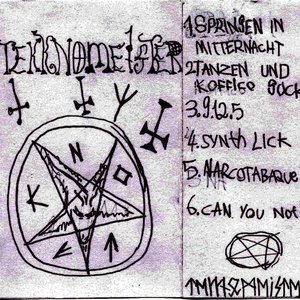 TEKKNOMEISTER
1. SPRINGEN IN
MITTERNACHT
2 TANZEN UND
3. 9.12.5
4. SYNTH LICK
5. NARCOTABAQUE
6. CAN YOU NOT
N
K
O